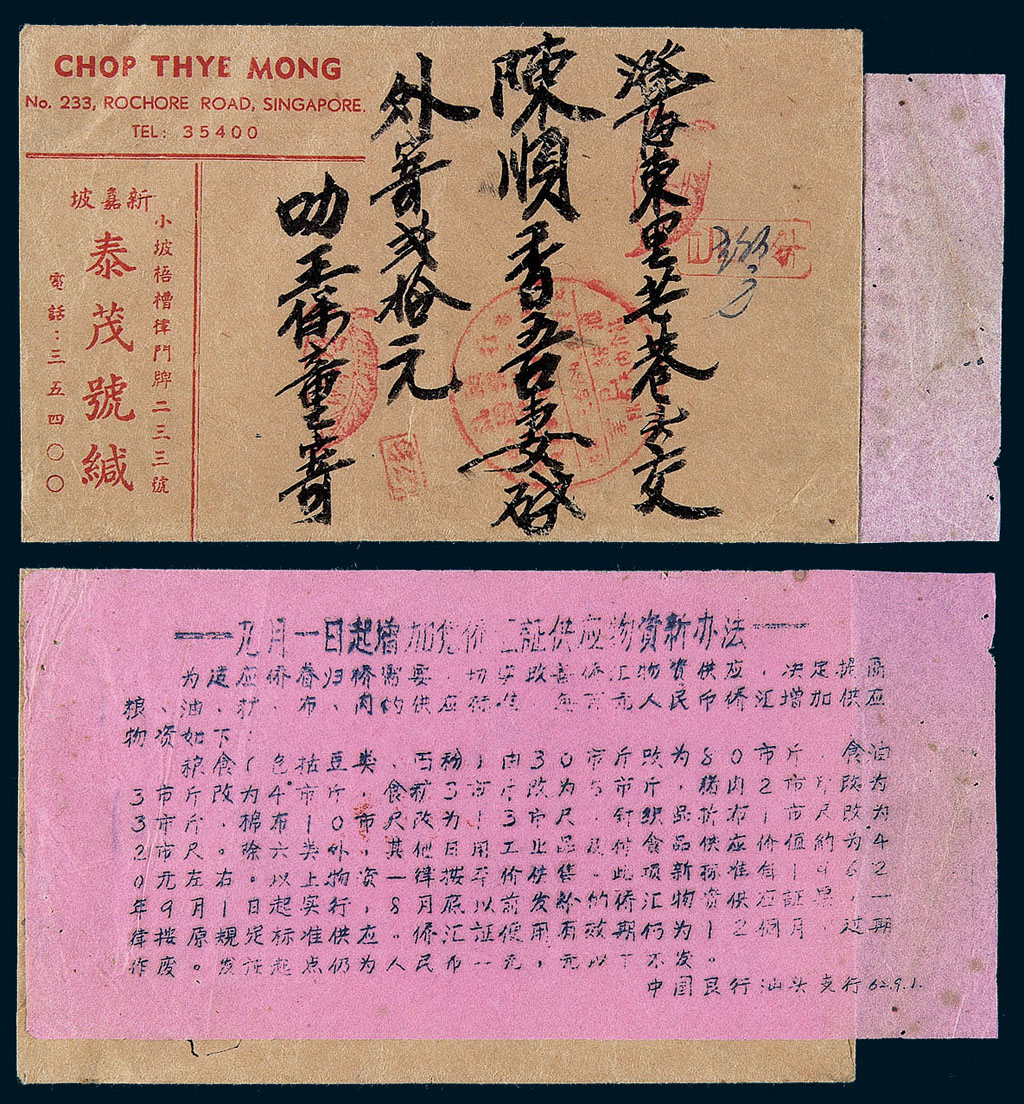 CHOP THYE MONG
No. 233, ROCHORE ROAD, SINGAPORE.
TEL: 35400
新嘉坡
小坡梧槽律門牌二三三號
泰茂號緘
電話：三五四〇〇
澄海東里
陳順香吾妻啟
外寄弍拾元
叻王保童寄
一九月一日起增加兌侨汇証供应物資新办法一
为适应侨眷归侨需要，切实改善侨汇物資供应，决定提高
粮、油、糖、布、肉的供应标准，每百元人民币侨汇增加供应
物資如下：
粮食(包括豆类、面粉)由30市斤改为80市斤，食油
3市斤改为4市斤，食糖3市斤改为5市斤，猪肉2市斤改为
3市斤，棉布10市尺改为13市尺，针织品折布1市尺改为
2市尺。除六类外，其他日用工业品及付食品供应价值約为4
0元左右。以上物資一律按平价供售。此項新标准自1962
年9月1日起实行，8月底以前发給的侨汇物資供应証票，一
律按原規定标准供应。侨汇証使用有效期仍为12個月，过期
作废。发証起点仍为人民币一元，元以下不发。
中国民行汕头支行62.9.1.